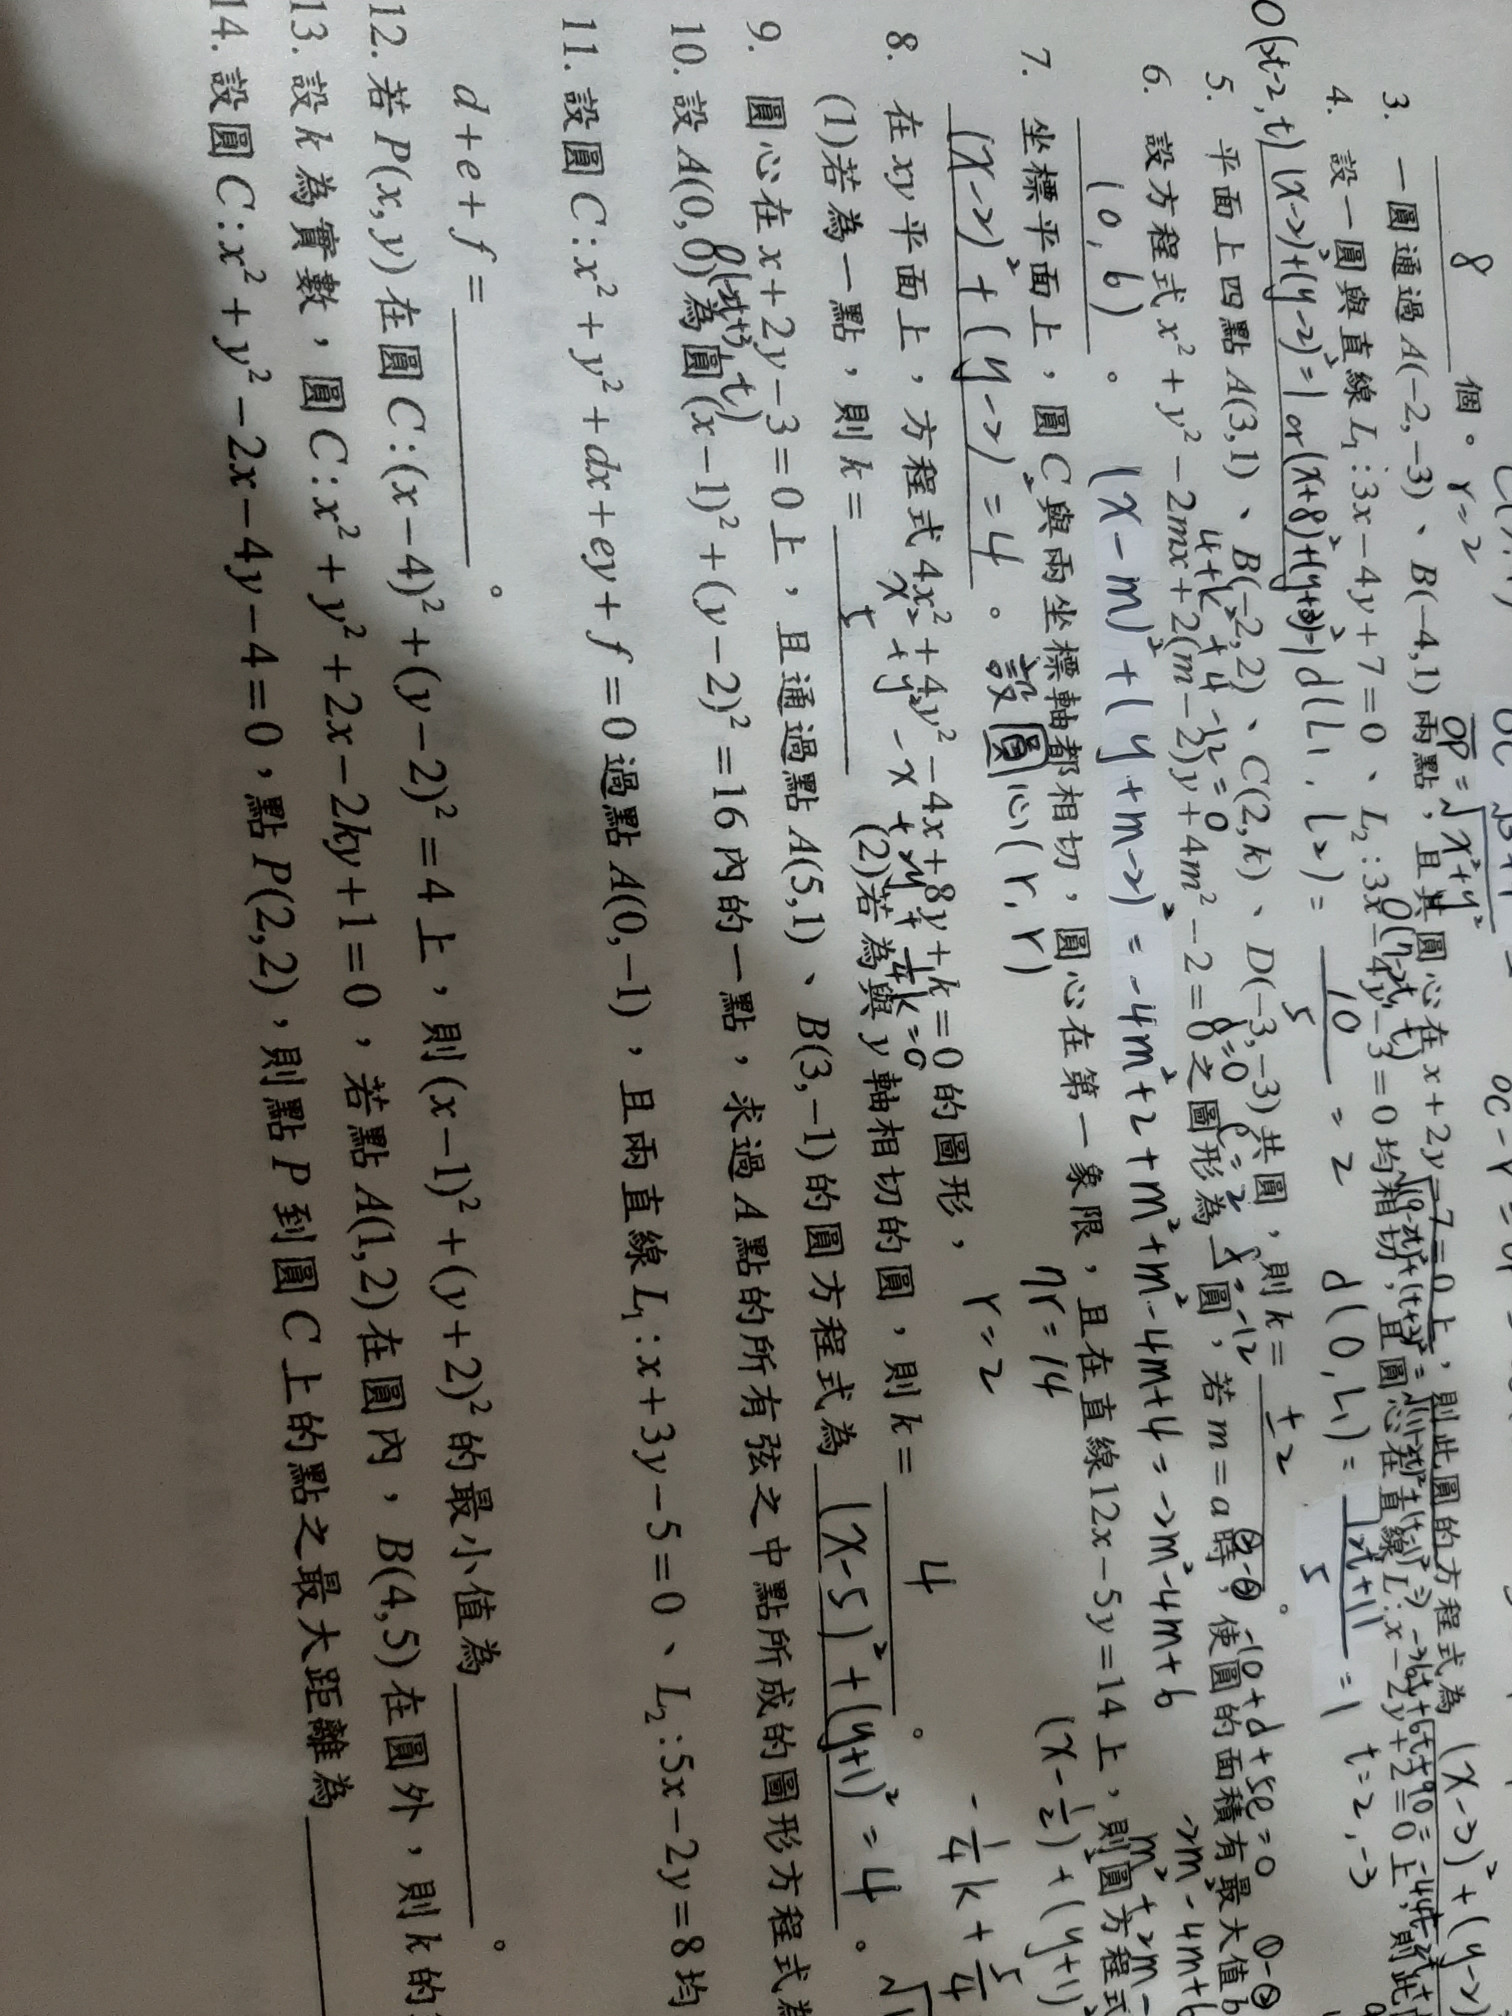 8 個。 r=2
3. 一圓通過 A(-2,-3)、B(-4,1) 兩點，且其圓心在 x+2y-7=0 上，則此圓的方程式為 (x-3)²+(y-2)
4. 設一圓與直線 L₁:3x-4y+7=0、L₂:3x-4y-3=0 均相切，且圓心在直線 L:x-2y+2=0 上，則此
(x-2)²+(y-2)²=1 or (x+8)²+(y+3)²=1 d(L₁, L₂) = 10/5 = 2 d(O, L₁) = |2t+1|/5 = 1 t=2, -3
O(2t-2, t)
5. 平面上四點 A(3,1)、B(-2,2)、C(2,k)、D(-3,-3) 共圓，則 k= ±2 。
4+k²+4-12=0 d=0 e=2 f=-12 -10+d+5e=0
6. 設方程式 x²+y²-2mx+2(m-2)y+4m²-2=0 之圖形為一圓，若 m=a 時，使圓的面積有最大值 b
(0, 6) 。 (x-m)²+(y+m-2)² = -4m²+2+m²+m²-4m+4 = -2m²-4m+6
7. 坐標平面上，圓 C 與兩坐標軸都相切，圓心在第一象限，且在直線 12x-5y=14 上，則圓方程式
(x-2)²+(y-2)²=4 。 設圓心(r, r) 7r=14 r=2
(x-1/2)²+(y+1)²
-1/4 k+5/4
8. 在 xy 平面上，方程式 4x²+4y²-4x+8y+k=0 的圖形，
x²+y²-x+2y+1/4k=0
(1)若為一點，則 k= 5 (2)若為與 y 軸相切的圓，則 k= 4 。
9. 圓心在 x+2y-3=0 上，且通過點 A(5,1)、B(3,-1) 的圓方程式為 (x-5)²+(y+1)²=4 。
O(-2t+3, t)
10. 設 A(0,0) 為圓 (x-1)²+(y-2)²=16 內的一點，求過 A 點的所有弦之中點所成的圖形方程式為
11. 設圓 C:x²+y²+dx+ey+f=0 過點 A(0,-1)，且兩直線 L₁:x+3y-5=0、L₂:5x-2y=8 均
d+e+f= 。
12. 若 P(x,y) 在圓 C:(x-4)²+(y-2)²=4 上，則 (x-1)²+(y+2)² 的最小值為 。
13. 設 k 為實數，圓 C:x²+y²+2x-2ky+1=0，若點 A(1,2) 在圓內，B(4,5) 在圓外，則 k 的
14. 設圓 C:x²+y²-2x-4y-4=0，點 P(2,2)，則點 P 到圓 C 上的點之最大距離為